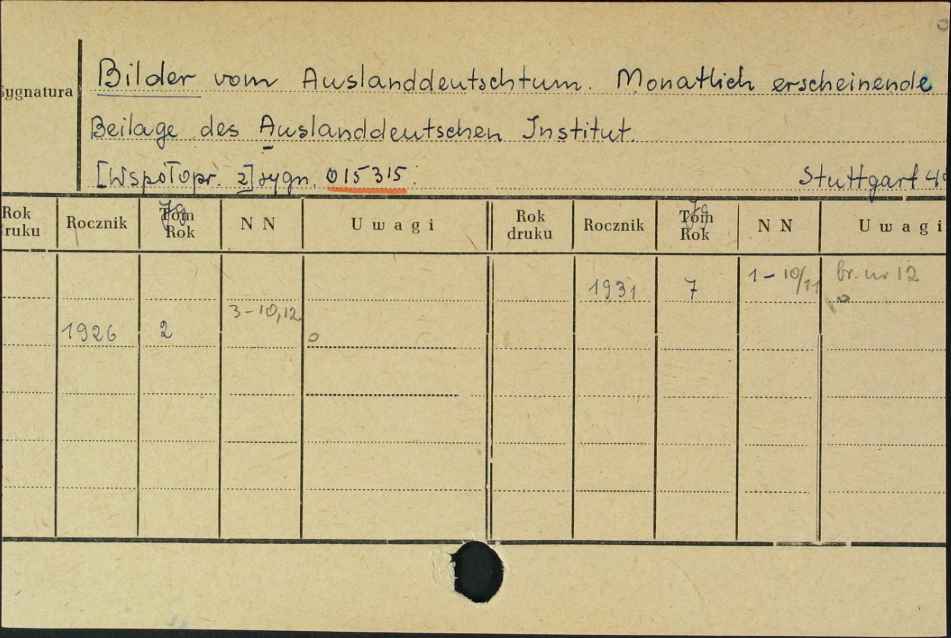 Sygnatura
Bilder vom Auslanddeutschtum. Monatlich erscheinende
Beilage des Auslanddeutschen Institut.
[Wspołopr. z] sygn. 015315. Stuttgart
Rok druku Rocznik Tom Jg Rok N N Uwagi Rok druku Rocznik Tom Jg Rok N N Uwagi
1931 7 1-10/11 br. nr 12
1926 2 3-10,12